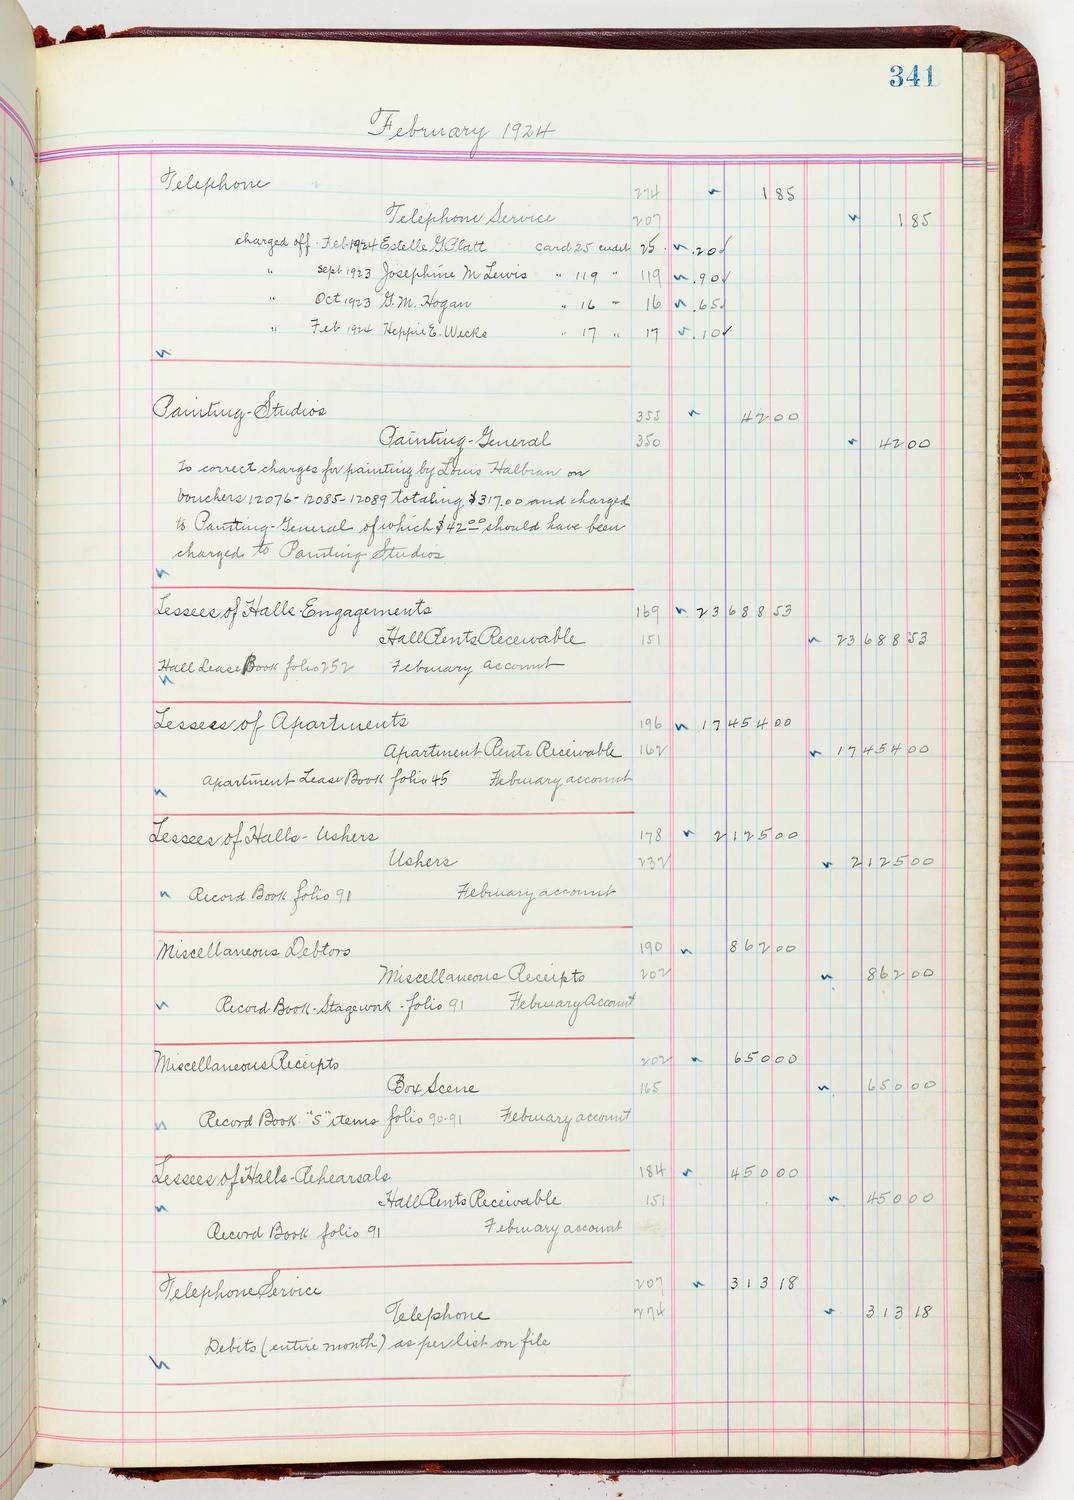 341
February 1924
Telephone 274 185
Telephone Service 207 185
charged off Feb 1924 Estelle G Platt card 25 credit 25 .20
" Sept 1923 Josephine M Lewis " 119 " 119 .90
" Oct 1923 G.M. Hogan " 16 " 16 .65
" Feb 1924 Heppie E. Wicks " 17 " 17 .10
Painting-Studios 355 4200
Painting-General 350 4200
To correct charges for painting by Louis Halbran on
vouchers 12076-12085-12089 totaling $317.00 and charged
to Painting-General of which $42 00 should have been
charged to Painting Studios
Lessees of Halls-Engagements 169 2368853
Hall Rents Receivable 151 2368853
Hall Lease Book folio 252 February account
Lessees of Apartments 196 1745400
Apartment Rents Receivable 162 1745400
Apartment Lease Book folio 45 February account
Lessees of Halls-Ushers 178 212500
Ushers 232 212500
Record Book folio 91 February account
Miscellaneous Debtors 190 86200
Miscellaneous Receipts 202 86200
Record Book-Stagework-folio 91 February Account
Miscellaneous Receipts 202 65000
Box Scene 165 65000
Record Book "S" items folio 90-91 February account
Lessees of Halls-Rehearsals 184 45000
Hall Rents Receivable 151 45000
Record Book folio 91 February account
Telephone Service 207 31318
Telephone 274 31318
Debits (entire month) as per list on file